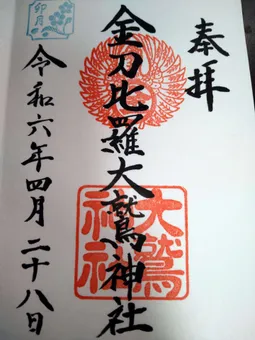 奉拝
金刀比羅大鷲神社
大鷲
神社
令和六年四月二十八日
卯月